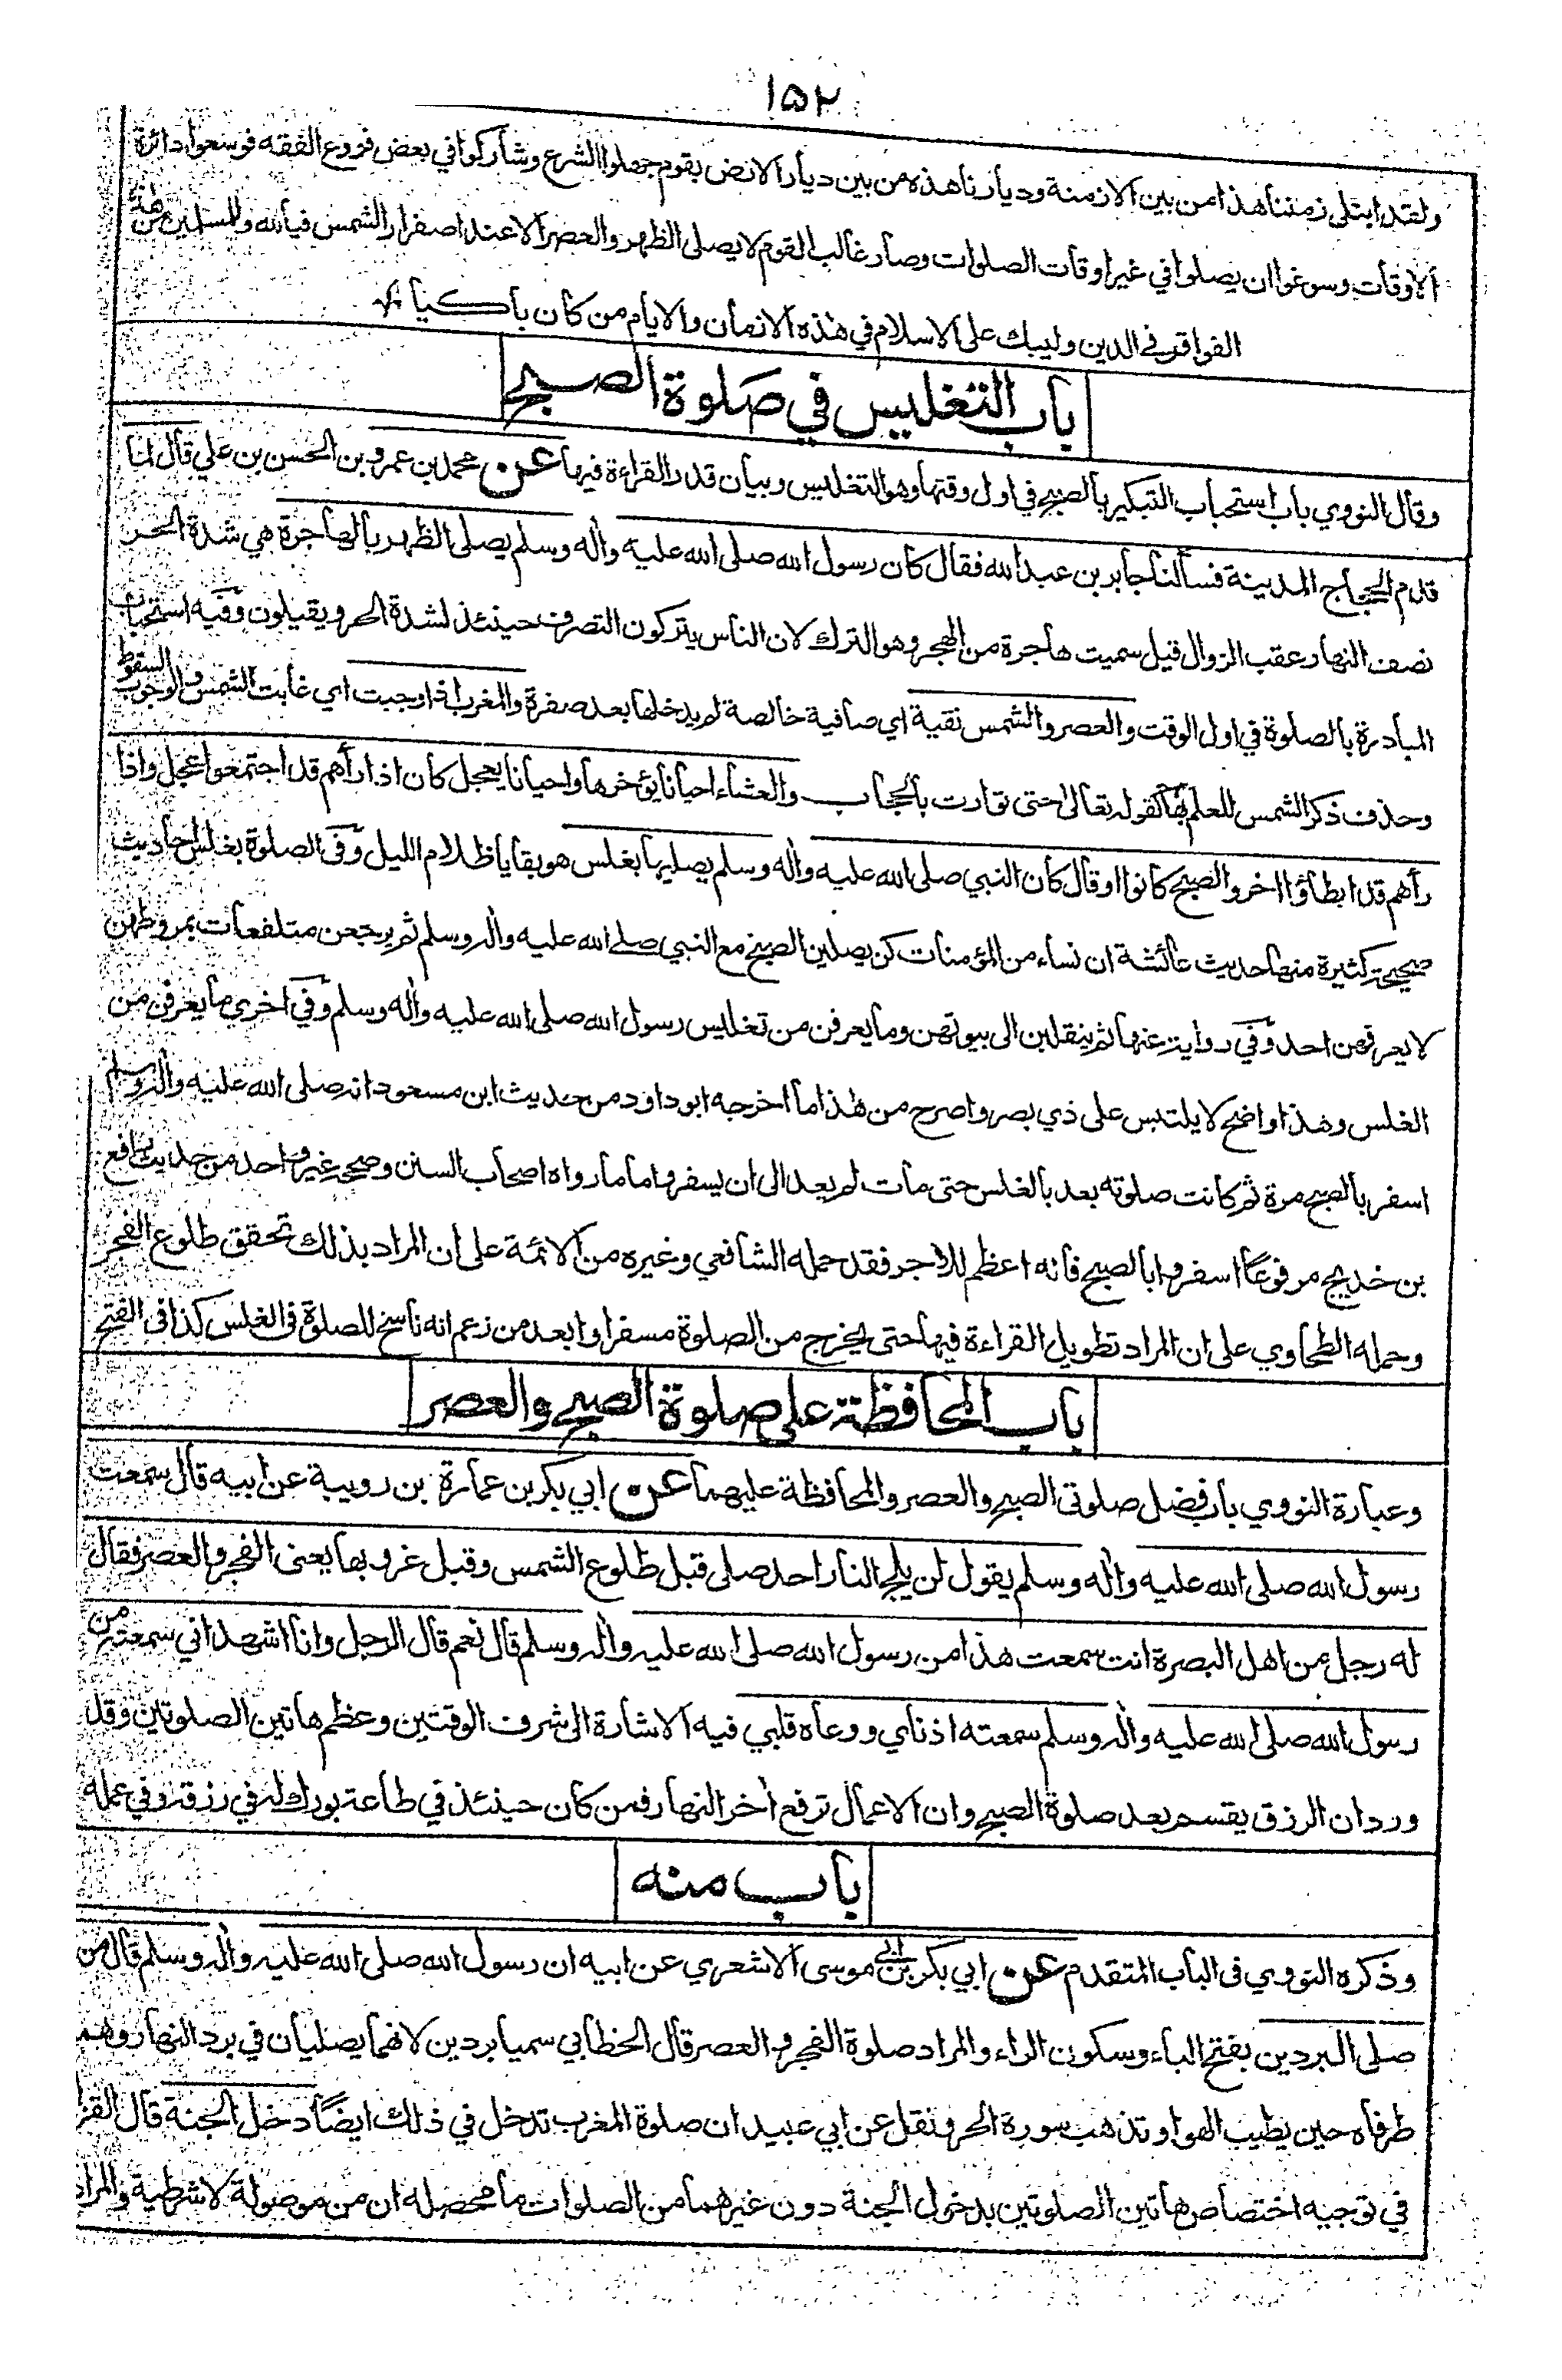 ١٥٢
ولقد ابتلى زمننا هذا من بين الازمنة وديارنا هذه من بين ديار الارض بقوم جهلوا الشرع وشاركوا في بعض فروع الفقه فوسعوا دائرة
الاوقات وسوغوا ان يصلوا في غير اوقات الصلوات وصار غالب القوم لا يصلى الظهر والعصر الا عند اصفرار الشمس فيا لله وللمسلمين من هذه
الفواقر في الدين وليبك على الاسلام في هذه الازمان والايام من كان باكيا
باب التغليس في صلوة الصبح
وقال النووي باب استحباب التبكير بالصبح في اول وقتها وهو التغليس وبيان قدر القراءة فيها عن محمد بن عمرو بن الحسن بن علي قال لما
قدم الحجاج المدينة فسألنا جابر بن عبد الله فقال كان رسول الله صلى الله عليه واله وسلم يصلى الظهر بالهاجرة هي شدة الحر
نصف النهار عقب الزوال قيل سميت هاجرة من الهجر وهو الترك لان الناس يتركون التصرف حينئذ لشدة الحر ويقيلون وفيه استحباب
المبادرة بالصلوة في اول الوقت والعصر والشمس نقية اي صافية خالصة لم يدخلها بعد صفرة والمغرب اذا وجبت اي غابت الشمس والوجوب السقوط
وحذف ذكر الشمس للعلم بها كقوله تعالى حتى توارت بالحجاب والعشاء احيانا يؤخرها واحيانا يعجل كان اذا رأهم قد اجتمعوا عجل واذا
رأهم قد ابطأوا اخر والصبح كانوا او قال كان النبي صلى الله عليه واله وسلم يصليها بغلس هو بقايا ظلام الليل وفي الصلوة بغلس احاديث
صحيحة كثيرة منها حديث عائشة ان نساء من المؤمنات كن يصلين الصبح مع النبي صلى الله عليه واله وسلم ثم يرجعن متلفعات بمروطهن
لا يعرفهن احد وفي رواية عنها ثم ينقلبن الى بيوتهن وما يعرفن من تغليس رسول الله صلى الله عليه واله وسلم وفي اخرى ما يعرفن من
الغلس وهذا واضح لا يلتبس على ذي بصر واصرح من هذا ما اخرجه ابو داود من حديث ابن مسعود انه صلى الله عليه واله وسلم
اسفر بالصبح مرة ثم كانت صلوته بعد بالغلس حتى مات لم يعد الى ان يسفر واما ما رواه اصحاب السنن وصححه غير واحد من حديث رافع
بن خديج مرفوعا اسفروا بالصبح فانه اعظم للاجر فقد حمله الشافعي وغيره من الائمة على ان المراد بذلك تحقق طلوع الفجر
وحمله الطحاوي على ان المراد تطويل القراءة فيها حتى يخرج من الصلوة مسفرا وابعد من زعم انه ناسخ للصلوة في الغلس كذا في الفتح
باب المحافظة على صلوة الصبح والعصر
وعبارة النووي باب فضل صلوتى الصبح والعصر والمحافظة عليهما عن ابي بكر بن عمارة بن رويبة عن ابيه قال سمعت
رسول الله صلى الله عليه واله وسلم يقول لن يلج النار احد صلى قبل طلوع الشمس وقبل غروبها يعنى الفجر والعصر فقال
له رجل من اهل البصرة انت سمعت هذا من رسول الله صلى الله عليه واله وسلم قال نعم قال الرجل وانا اشهد اني سمعته من
رسول الله صلى الله عليه واله وسلم سمعته اذناي ووعاه قلبي فيه الاشارة الى شرف الوقتين وعظم هاتين الصلوتين وقد
ورد ان الرزق يقسم بعد صلوة الصبح وان الاعمال ترفع اخر النهار فمن كان حينئذ في طاعة بورك له في رزقه وفي عمله
باب منه
وذكره النووي في الباب المتقدم عن ابي بكر بن ابي موسى الاشعري عن ابيه ان رسول الله صلى الله عليه واله وسلم قال من
صلى البردين بفتح الباء وسكون الراء والمراد صلوة الفجر والعصر قال الخطابي سميا بردين لانهما يصليان في برد النهار وهما
طرفاه حين يطيب الهوا وتذهب سورة الحر ونقل عن ابي عبيد ان صلوة المغرب تدخل في ذلك ايضًا دخل الجنة قال القز
في توجيه اختصاص هاتين الصلوتين بدخول الجنة دون غيرهما من الصلوات ما محصله ان من موصولة لا شرطية والمراد